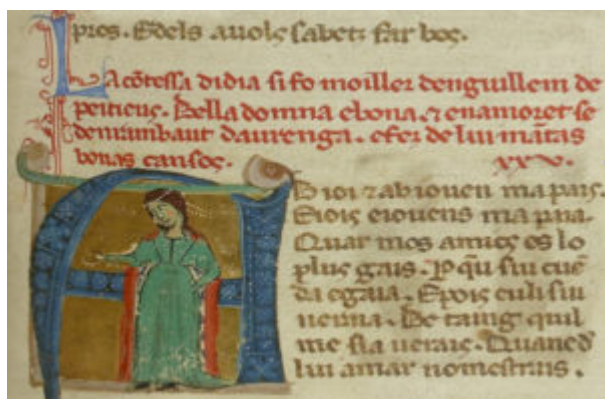 pros. Edels auols sabetz far bos.
La cōtessa didia si fo moiller denguillem de
peiticus. Bella domna ebona. ⁊ enamoret se
denrambaut daurenga. efez de lui mātas
bonas cansos. xxv.
Ab ioi ⁊ ab iouen ma pais.
Eiois eiouens ma paia.
Quar mos amics es lo
plus gais. P qu sui
da egaia. Epois eu li sui
ueraia. Be taing quil
me sia uerais. Quanc d
lui amar nomestrais.